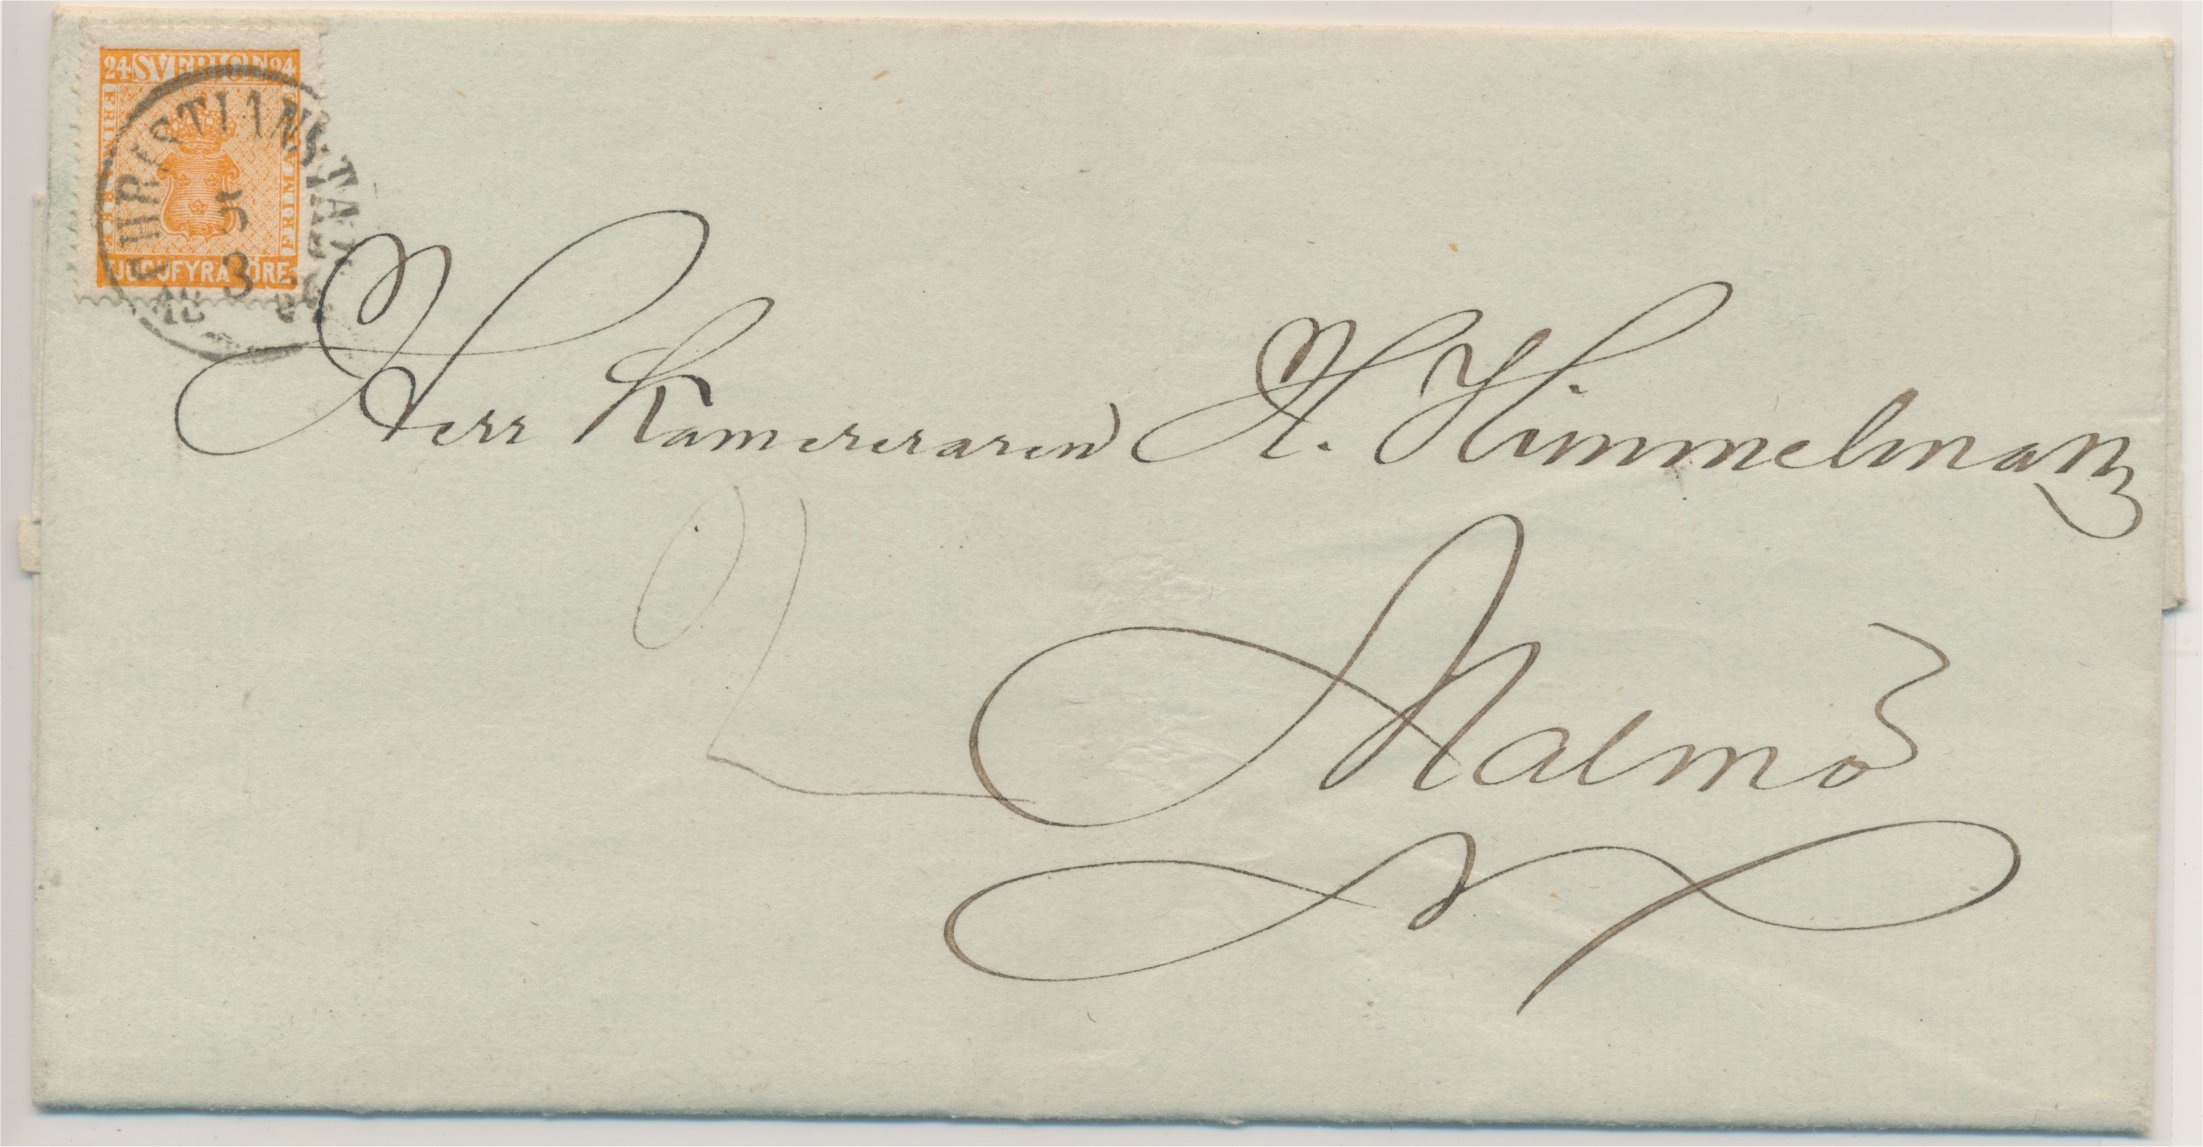 24 SVERIGE 24
FRIMÄRKE
FRIMÄRKE
TJUGUFYRA ÖRE
CHRISTIANSTAD
5
3
18
Herr Kamereraren H. Himmelman
Malmö